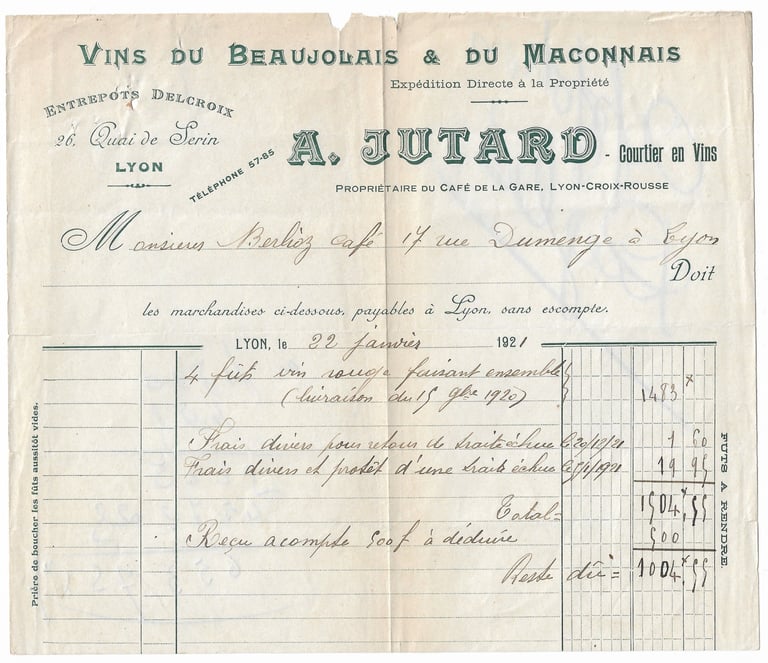 VINS DU BEAUJOLAIS & DU MACONNAIS
Expédition Directe à la Propriété
ENTREPÔTS DELCROIX
26, Quai de Serin
LYON
TÉLÉPHONE 57-85
A. JUTARD - Courtier en Vins
PROPRIÉTAIRE DU CAFÉ DE LA GARE, LYON-CROIX-ROUSSE
Monsieur Berlioz café 17 rue Dumenge à Lyon
Doit
les marchandises ci-dessous, payables à Lyon, sans escompte.
LYON, le 22 janvier 1921
4 fûts vin rouge faisant ensemble
(livraison du 15 9bre 1920) 1483 x
Frais divers pour retour de traite échue le 20/12/20 1 60
Frais divers et protêt d'une traite échue le 5/1/1921 19 95
Total = 1504 x, 55
Reçu acompte 500f à déduire 500
Reste dû = 1004 x, 55
Prière de boucher les fûts aussitôt vides.
FUTS A RENDRE